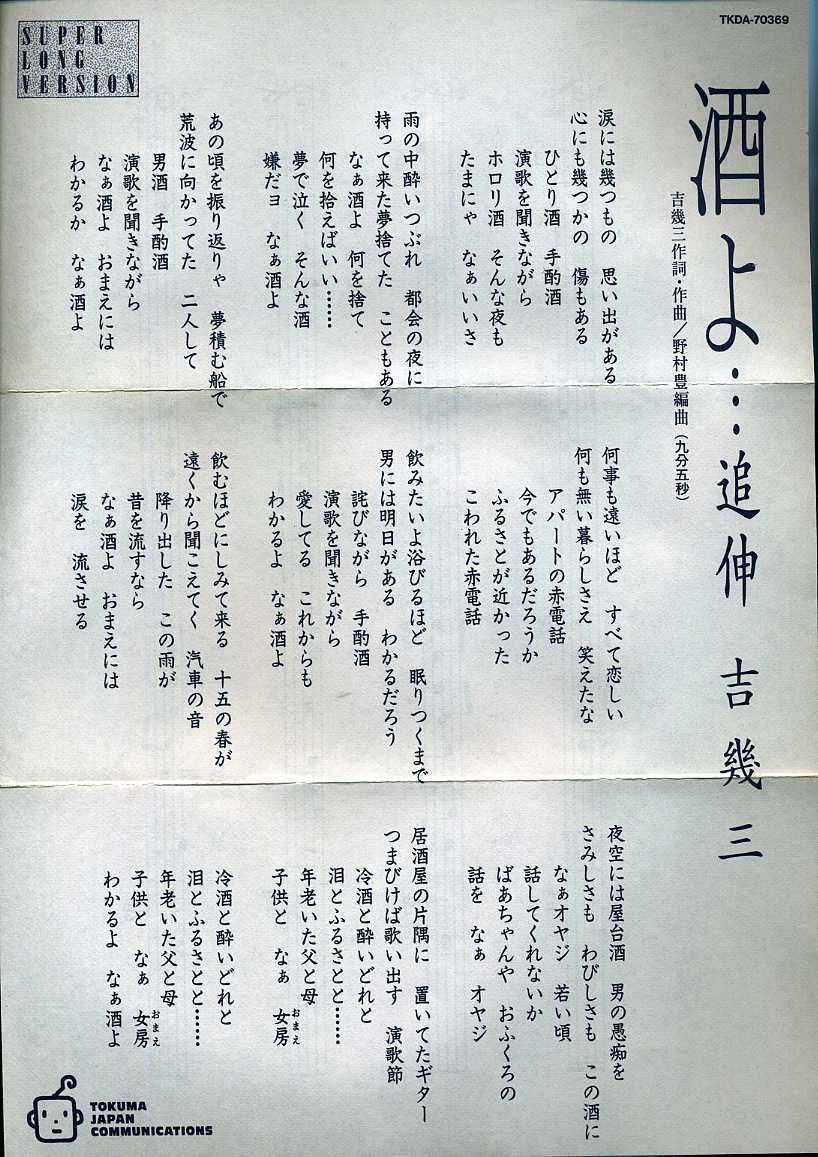 TKDA-70369
SUPER
LONG
VERSION
酒よ…追伸　吉幾三
吉幾三作詞・作曲／野村豊編曲（九分五秒）
涙には幾つもの　思い出がある
心にも幾つかの　傷もある
ひとり酒　手酌酒
演歌を聞きながら
ホロリ酒　そんな夜も
たまにゃ　なぁいいさ
雨の中酔いつぶれ　都会の夜に
持って来た夢捨てた　こともある
なぁ酒よ　何を捨て
何を拾えばいい……
夢で泣く　そんな酒
嫌だヨ　なぁ酒よ
あの頃を振り返りゃ　夢積む船で
荒波に向かってた　二人して
男酒　手酌酒
演歌を聞きながら
なぁ酒よ　おまえには
わかるか　なぁ酒よ
何事も遠いほど　すべて恋しい
何も無い暮らしさえ　笑えたな
アパートの赤電話
今でもあるだろうか
ふるさとが近かった
こわれた赤電話
飲みたいよ浴びるほど　眠りつくまで
男には明日がある　わかるだろう
詫びながら　手酌酒
演歌を聞きながら
愛してる　これからも
わかるよ　なぁ酒よ
飲むほどにしみて来る　十五の春が
遠くから聞こえてく　汽車の音
降り出した　この雨が
昔を流すなら
なぁ酒よ　おまえには
涙を　流させる
夜空には屋台酒　男の愚痴を
さみしさも　わびしさも　この酒に
なぁオヤジ　若い頃
話してくれないか
ばあちゃんや　おふくろの
話を　なぁ　オヤジ
居酒屋の片隅に　置いてたギター
つまびけば歌い出す　演歌節
冷酒と酔いどれと
泪とふるさとと……
年老いた父と母
子供と　なぁ　女房（おまえ）
冷酒と酔いどれと
泪とふるさとと……
年老いた父と母
子供と　なぁ　女房（おまえ）
わかるよ　なぁ酒よ
TOKUMA
JAPAN
COMMUNICATIONS